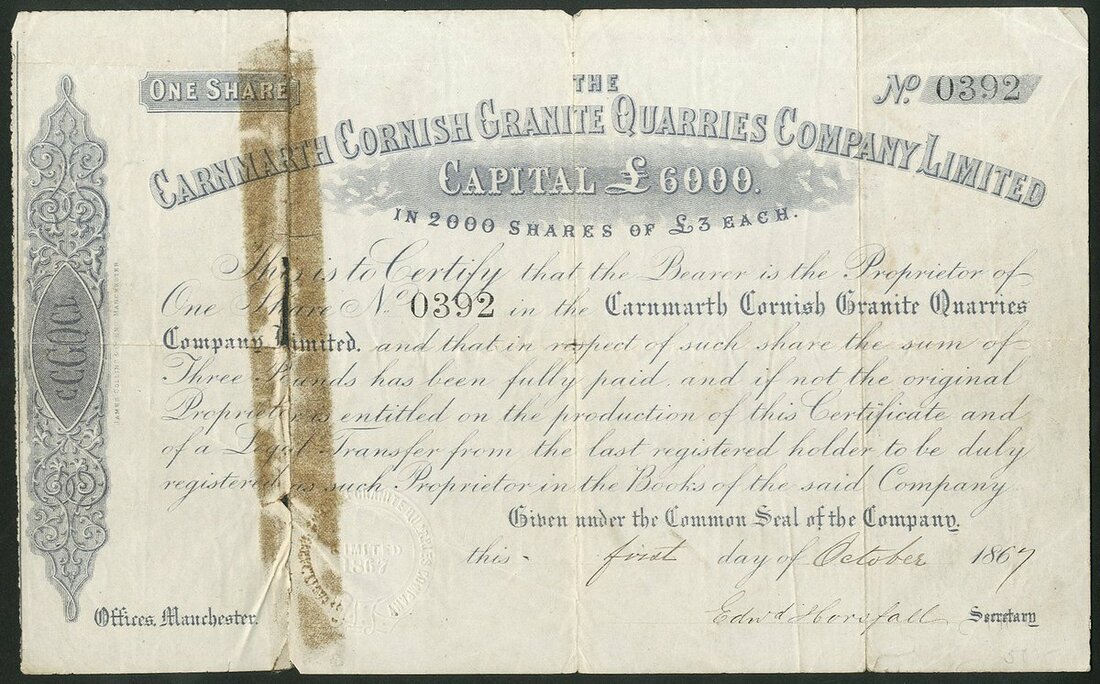 ONE SHARE
No. 0392
THE
CARNMARTH CORNISH GRANITE QUARRIES COMPANY LIMITED
CAPITAL £6000.
IN 2000 SHARES OF £3 EACH.
This is to Certify that the Bearer is the Proprietor of
One Share No. 0392 in the Carnmarth Cornish Granite Quarries
Company Limited. and that in respect of such share the sum of
Three Pounds has been fully paid, and if not the original
Proprietor is entitled on the production of this Certificate and
of a Legal Transfer from the last registered holder to be duly
registered as such Proprietor in the Books of the said Company
Given under the Common Seal of the Company.
this first day of October 1867
Offices, Manchester.
Edwd Horsfall Secretary
CCGQCL
LIMITED
1867